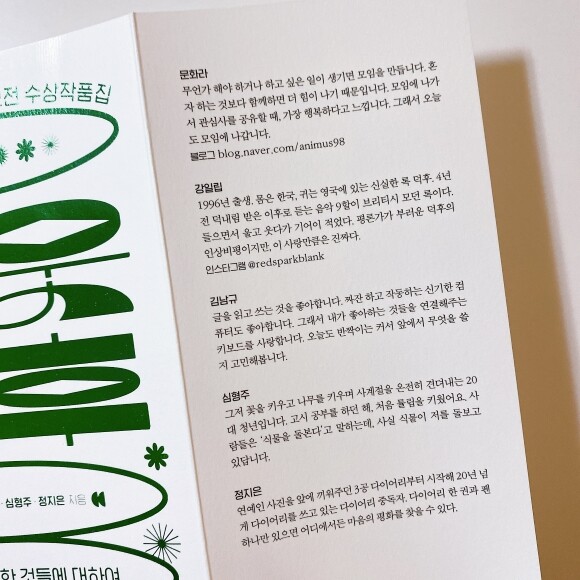 전 수상작품집
심형주·정지은 지음
한 것들에 대하여
문화라
무언가 해야 하거나 하고 싶은 일이 생기면 모임을 만듭니다. 혼
자 하는 것보다 함께하면 더 힘이 나기 때문입니다. 모임에 나가
서 관심사를 공유할 때, 가장 행복하다고 느낍니다. 그래서 오늘
도 모임에 나갑니다.
블로그 blog.naver.com/animus98
강일립
1996년 출생. 몸은 한국, 귀는 영국에 있는 신실한 록 덕후. 4년
전 덕내림 받은 이후로 듣는 음악 9할이 브리티시 모던 록이다.
들으면서 울고 웃다가 기어이 적었다. 평론가가 부러운 덕후의
인상비평이지만, 이 사랑만큼은 진짜다.
인스타그램 @redsparkblank
김남규
글을 읽고 쓰는 것을 좋아합니다. 짜잔 하고 작동하는 신기한 컴
퓨터도 좋아합니다. 그래서 내가 좋아하는 것들을 연결해주는
키보드를 사랑합니다. 오늘도 반짝이는 커서 앞에서 무엇을 쓸
지 고민해봅니다.
심형주
그저 꽃을 키우고 나무를 키우며 사계절을 온전히 견뎌내는 20
대 청년입니다. 고시 공부를 하던 해, 처음 튤립을 키웠어요. 사
람들은 ‘식물을 돌본다’고 말하는데, 사실 식물이 저를 돌보고
있답니다.
정지은
연예인 사진을 앞에 끼워주던 3공 다이어리부터 시작해 20년 넘
게 다이어리를 쓰고 있는 다이어리 중독자. 다이어리 한 권과 펜
하나만 있으면 어디에서든 마음의 평화를 찾을 수 있다.